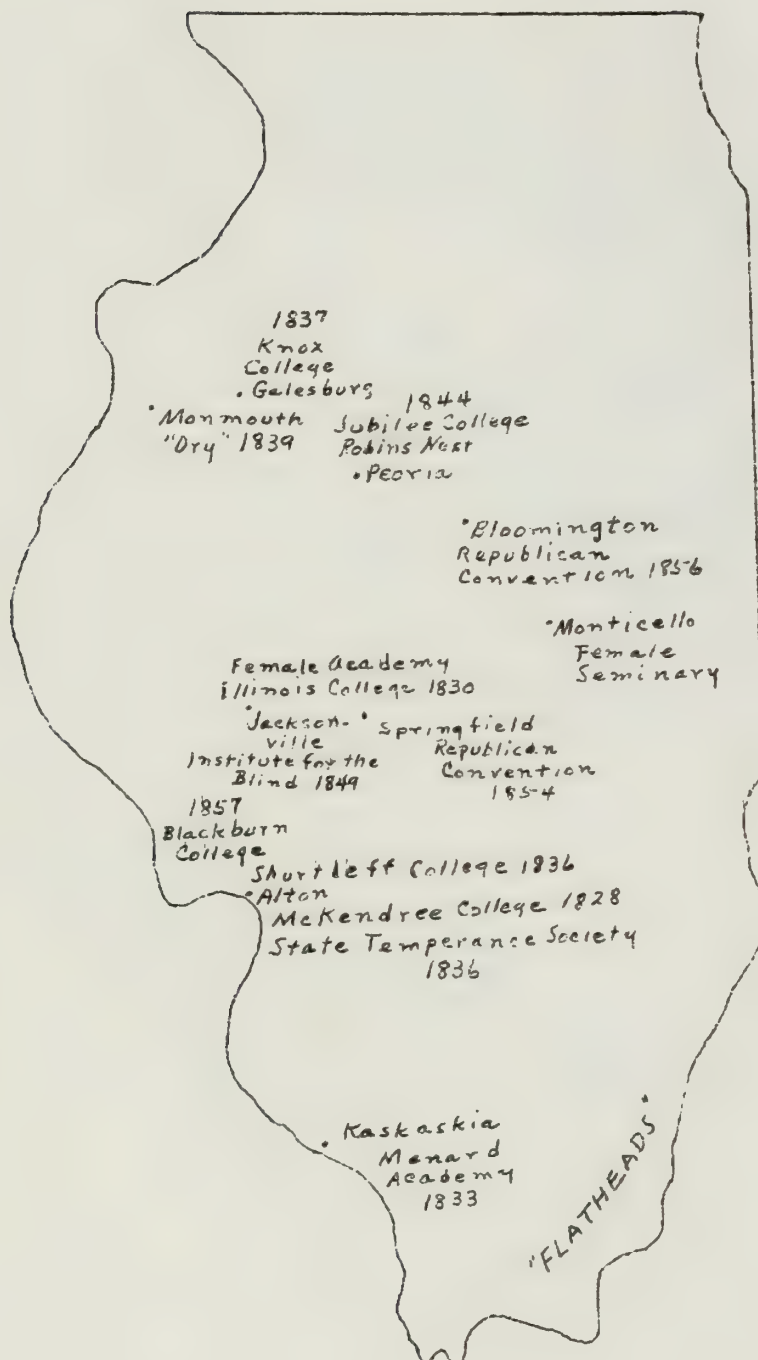 1837
Knox
College
Galesburg
Monmouth
"Dry" 1839
1844
Jubilee College
Robins Nest
Peoria
Bloomington
Republican
Convention 1856
Monticello
Female
Seminary
Female Academy
Illinois College 1830
Jackson-
ville
Institute for the
Blind 1849
Springfield
Republican
Convention
1854
1857
Blackburn
College
Shurtleff College 1836
Alton
McKendree College 1828
State Temperance Society
1836
Kaskaskia
Menard
Academy
1833
"FLATHEADS"